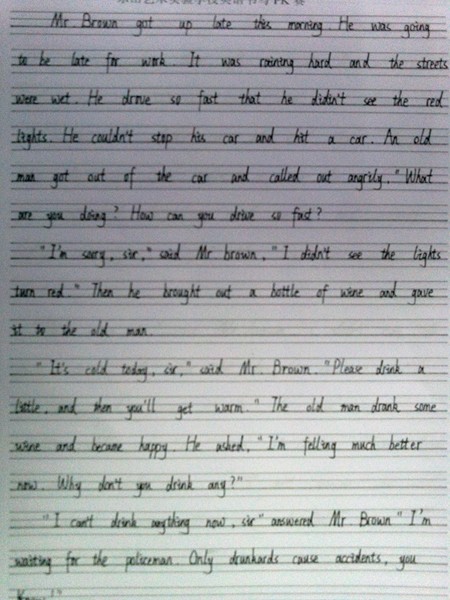 Mr Brown got up late this morning. He was going
to be late for work. It was raining hard and the streets
were wet. He drove so fast that he didn't see the red
lights. He couldn't stop his car and hit a car. An old
man got out of the car and called out angrily, "What
are you doing? How can you drive so fast?
"I'm sorry, sir," said Mr brown, "I didn't see the lights
turn red." Then he brought out a bottle of wine and gave
it to the old man.
"It's cold today, sir," said Mr. Brown. "Please drink a
little, and then you'll get warm." The old man drank some
wine and became happy. He asked, "I'm felling much better
now. Why don't you drink any?"
"I can't drink anything now, sir" answered Mr Brown "I'm
waiting for the policeman. Only drunkards cause accidents, you
know!"